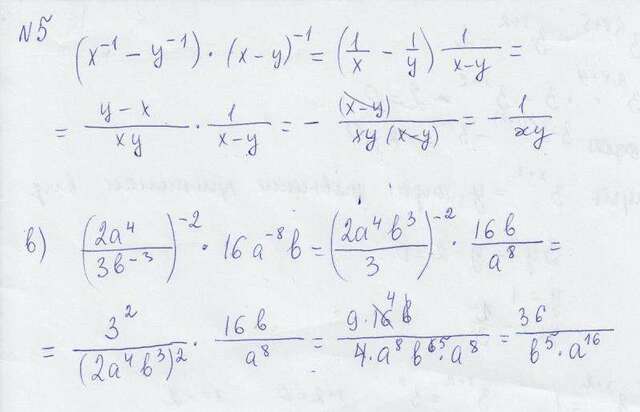 №5
(x⁻¹ − y⁻¹) · (x−y)⁻¹ = (1/x − 1/y) 1/(x−y) =
= (y−x)/(xy) · 1/(x−y) = − (x−y)/(xy(x−y)) = − 1/(xy)
в) (2a⁴/(3b⁻³))⁻² · 16a⁻⁸b = (2a⁴b³/3)⁻² · 16b/a⁸ =
= 3²/(2a⁴b³)² · 16b/a⁸ = 9·16⁴b/(4·a⁸b⁶⁵·a⁸) = 36/(b⁵·a¹⁶)